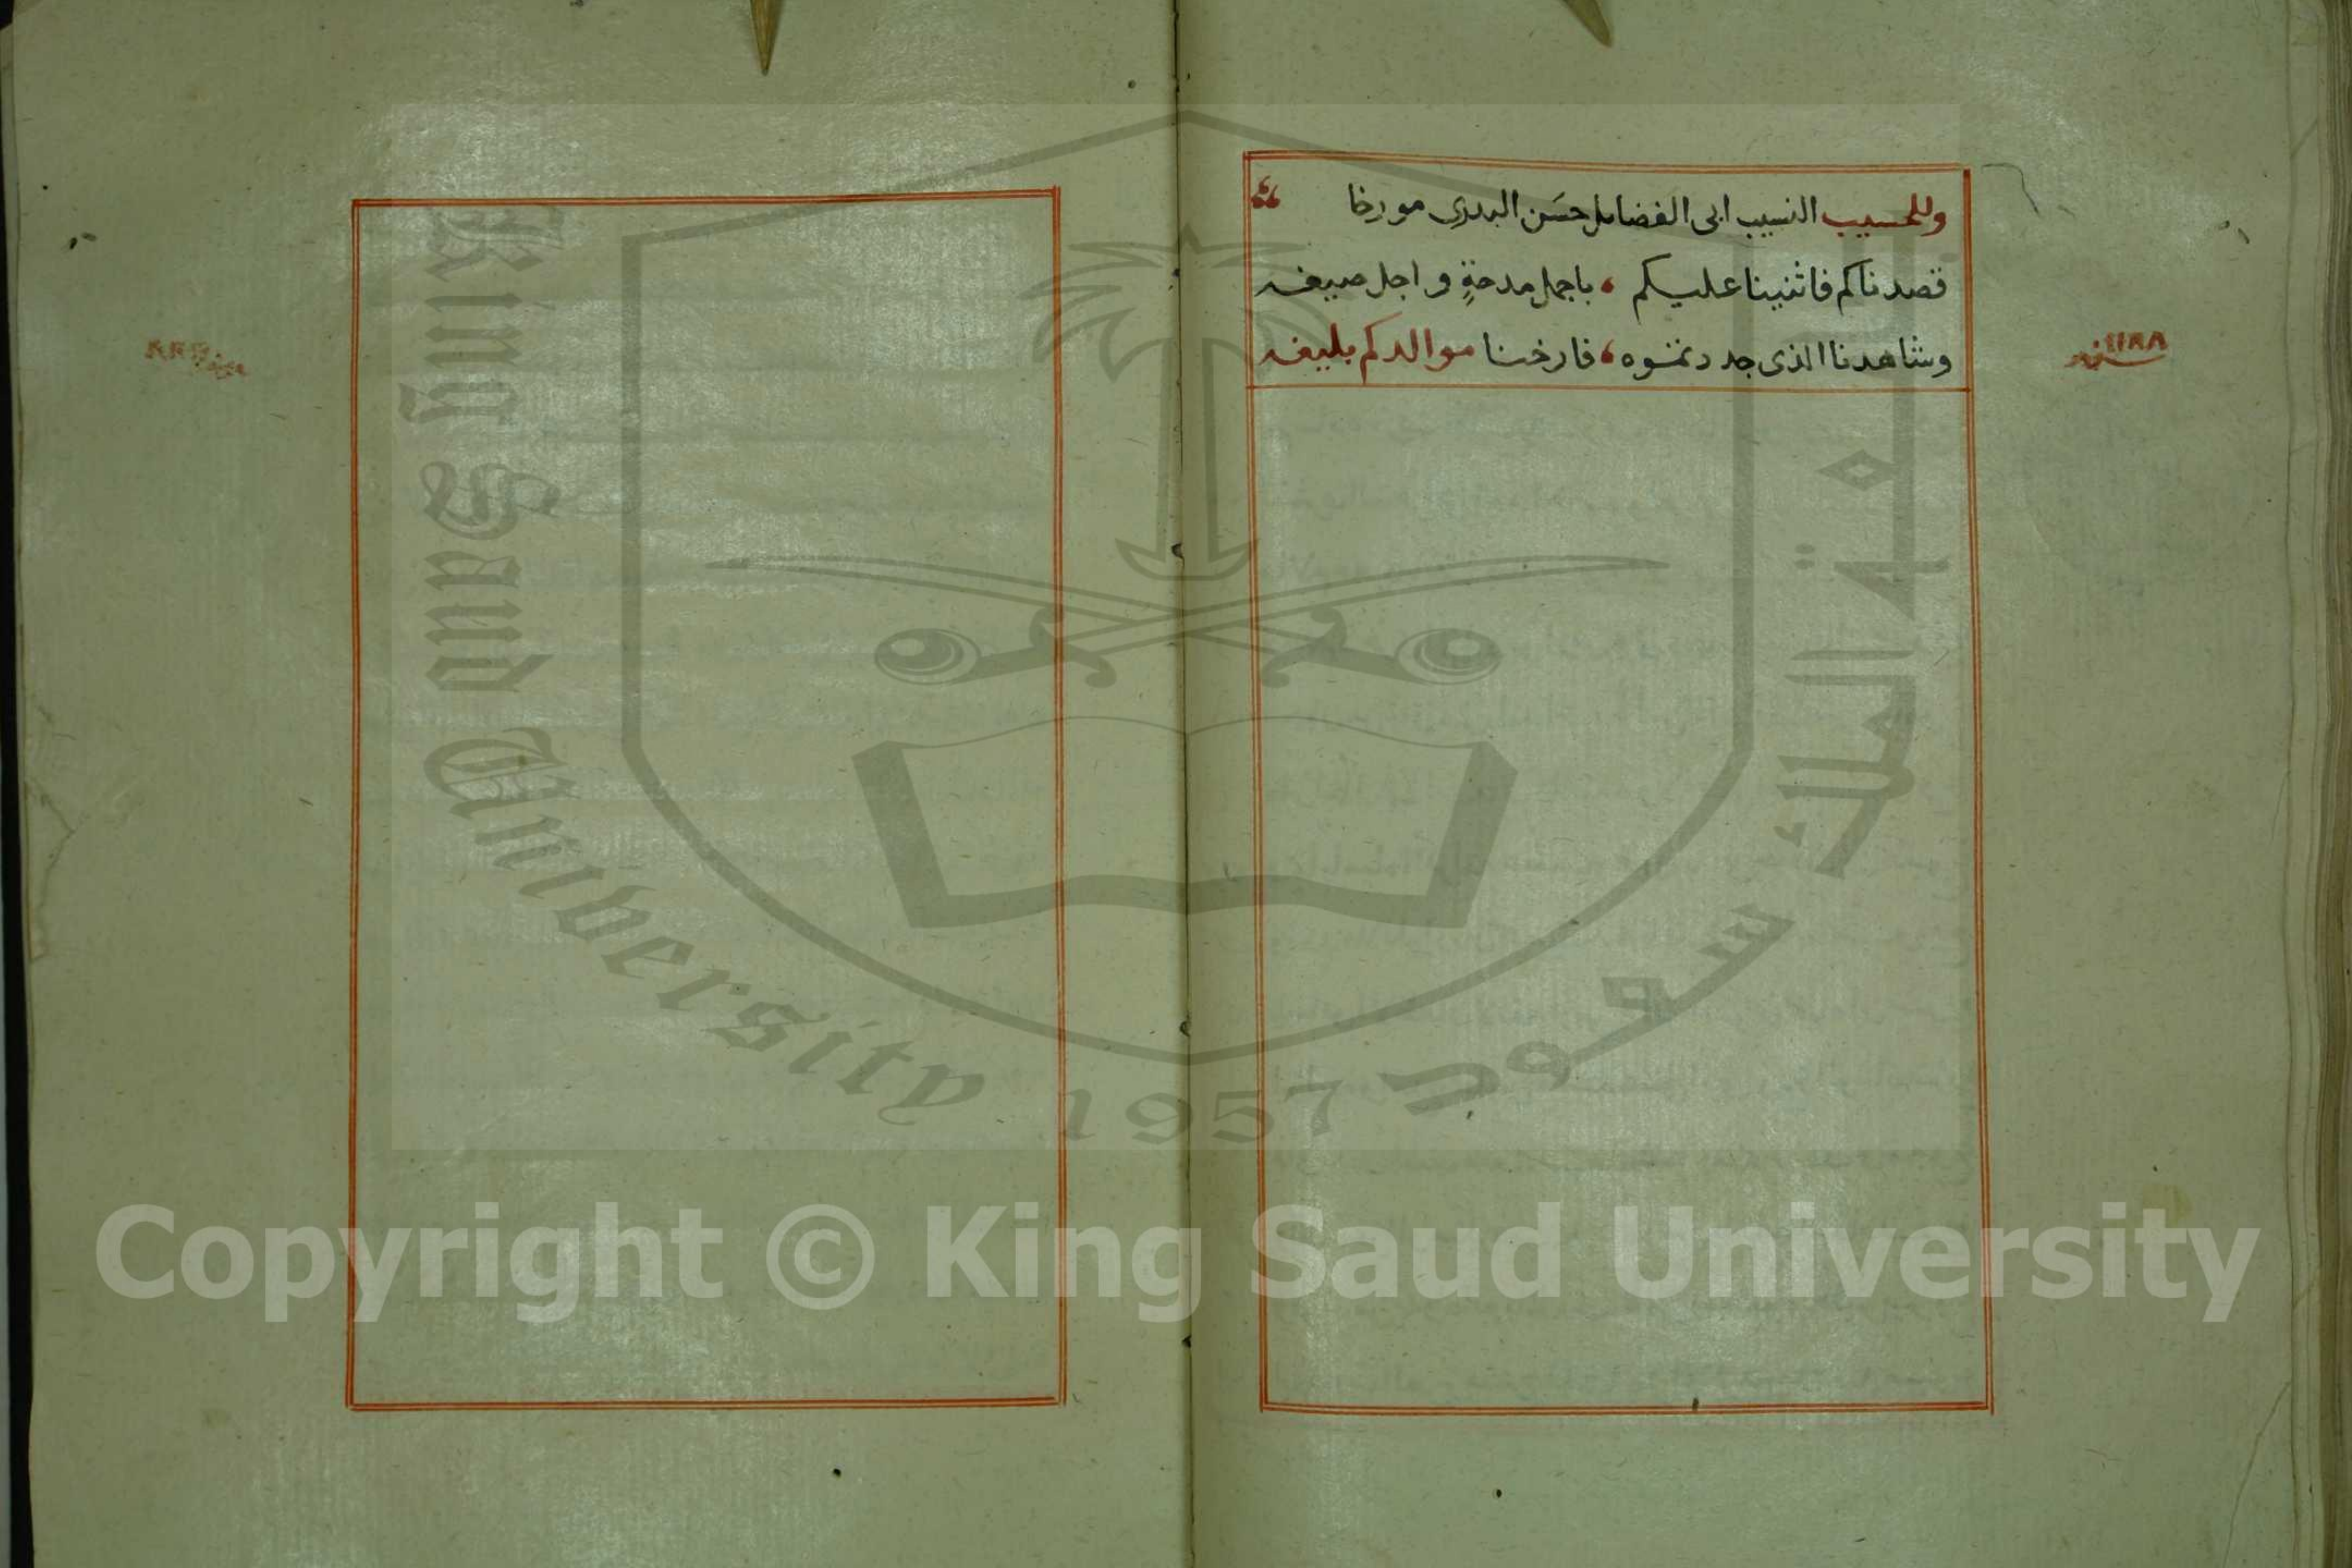 وللحسيب النسيب ابى الفضايل حسن البدرى مورخا
قصدناكم فاثنينا عليكم ، باجمل مدحةٍ واجل صيغه
وشاهدنا الذى جددتموه ، فارخنا موالدكم بليغه
سنة ١١٨٨
King Saud University
1957
جامعة الملك سعود
Copyright © King Saud University